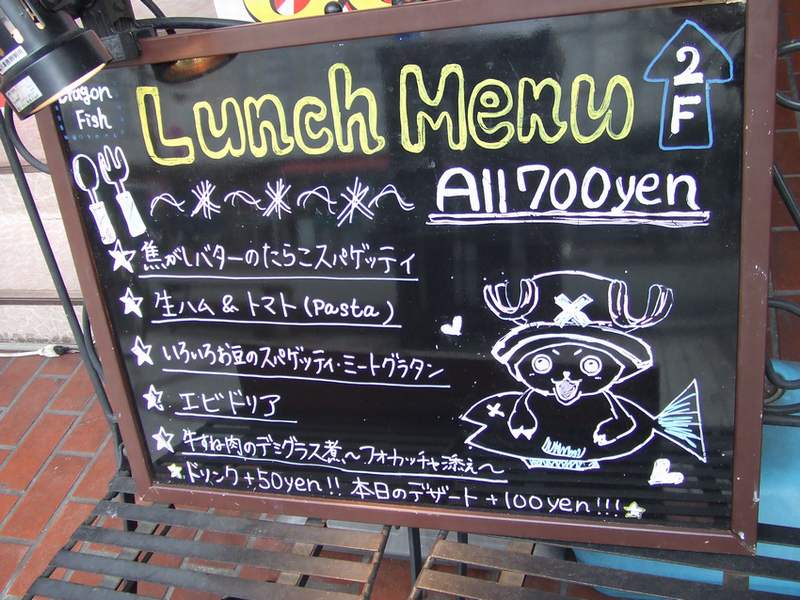 Dragon
Fish
Lunch Menu
2F
All 700yen
焦がしバターのたらこスパゲッティ
生ハム & トマト (Pasta)
いろいろお豆のスパゲッティ・ミートグラタン
エビドリア
牛すね肉のデミグラス煮、〜フォカッチャ添え〜
ドリンク +50yen!! 本日のデザート +100yen!!!